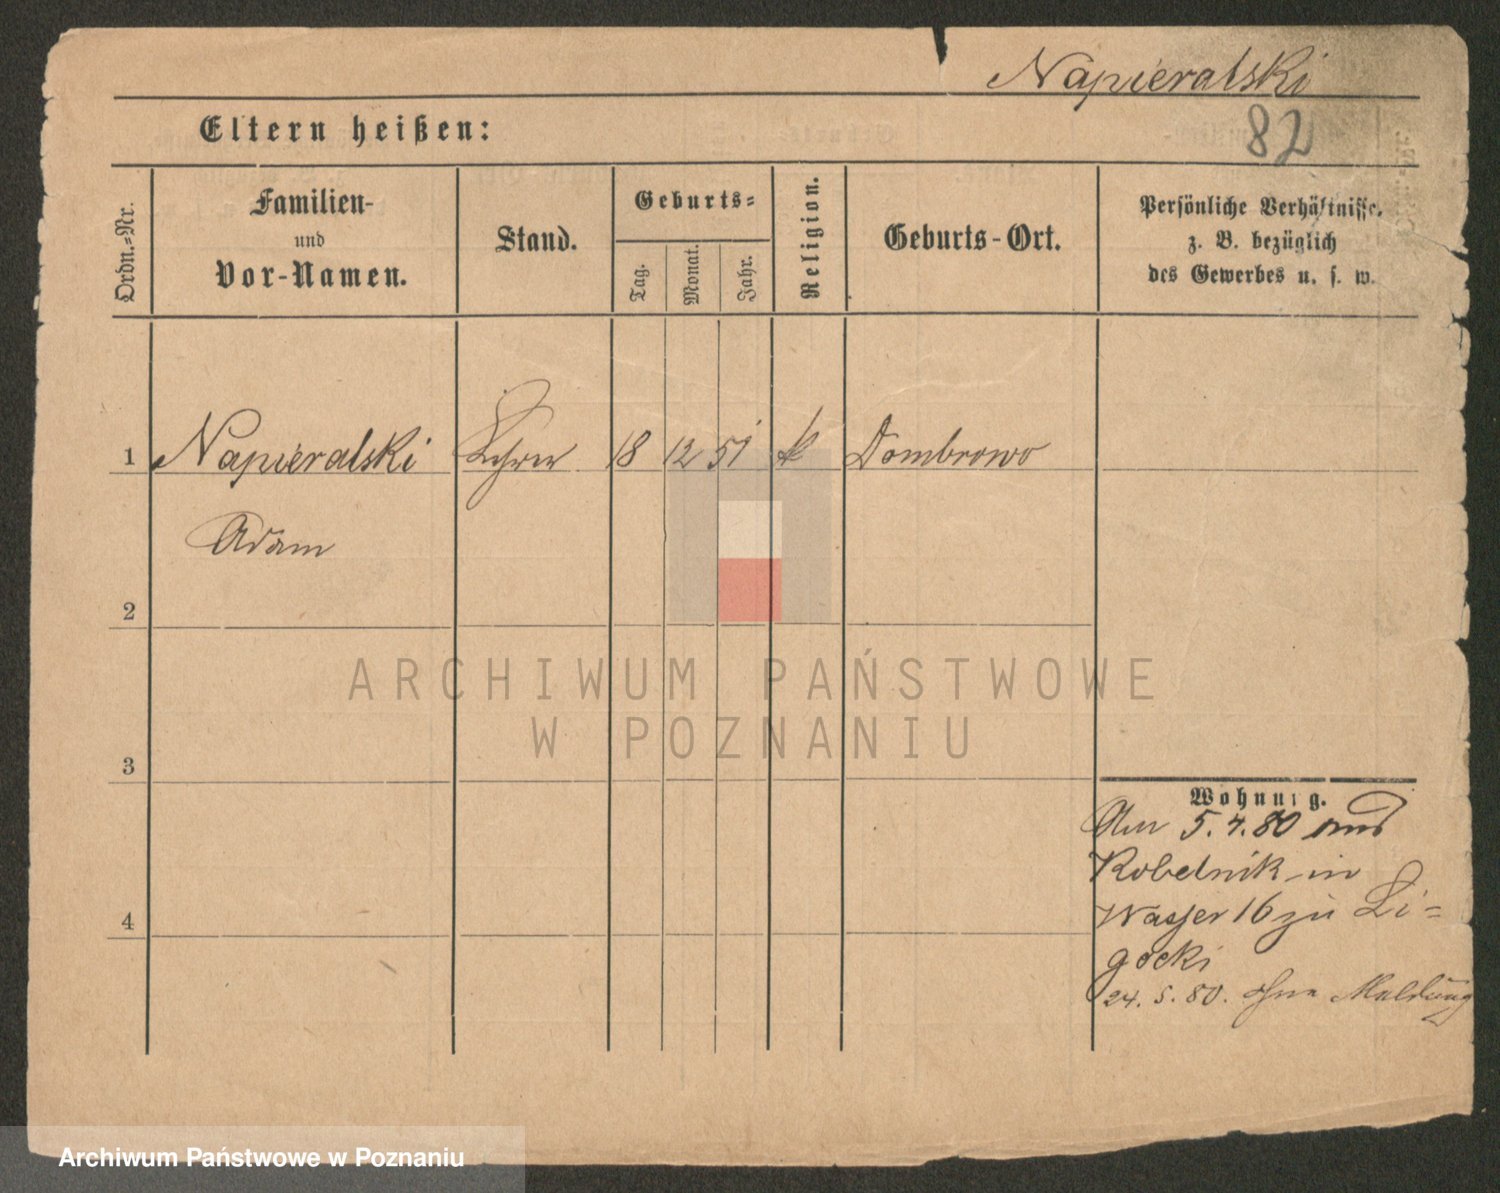 Napieralski
82
Eltern heißen:
Ordn.-Nr.
Familien-
und
Vor-Namen.
Stand.
Geburts-
Tag.
Monat.
Jahr.
Religion.
Geburts-Ort.
Persönliche Verhältnisse.
z. B. bezüglich
des Gewerbes u. s. w.
1 Napieralski 18 12 51 k Dombrowo
Adam
2
3
4
Wohnung.
Am 5.4.80 aus
Robelnik in
Wasser 16 zu Li=
gocki
24. 5. 80. ohne Meldung
ARCHIWUM PAŃSTWOWE
W POZNANIU
Archiwum Państwowe w Poznaniu